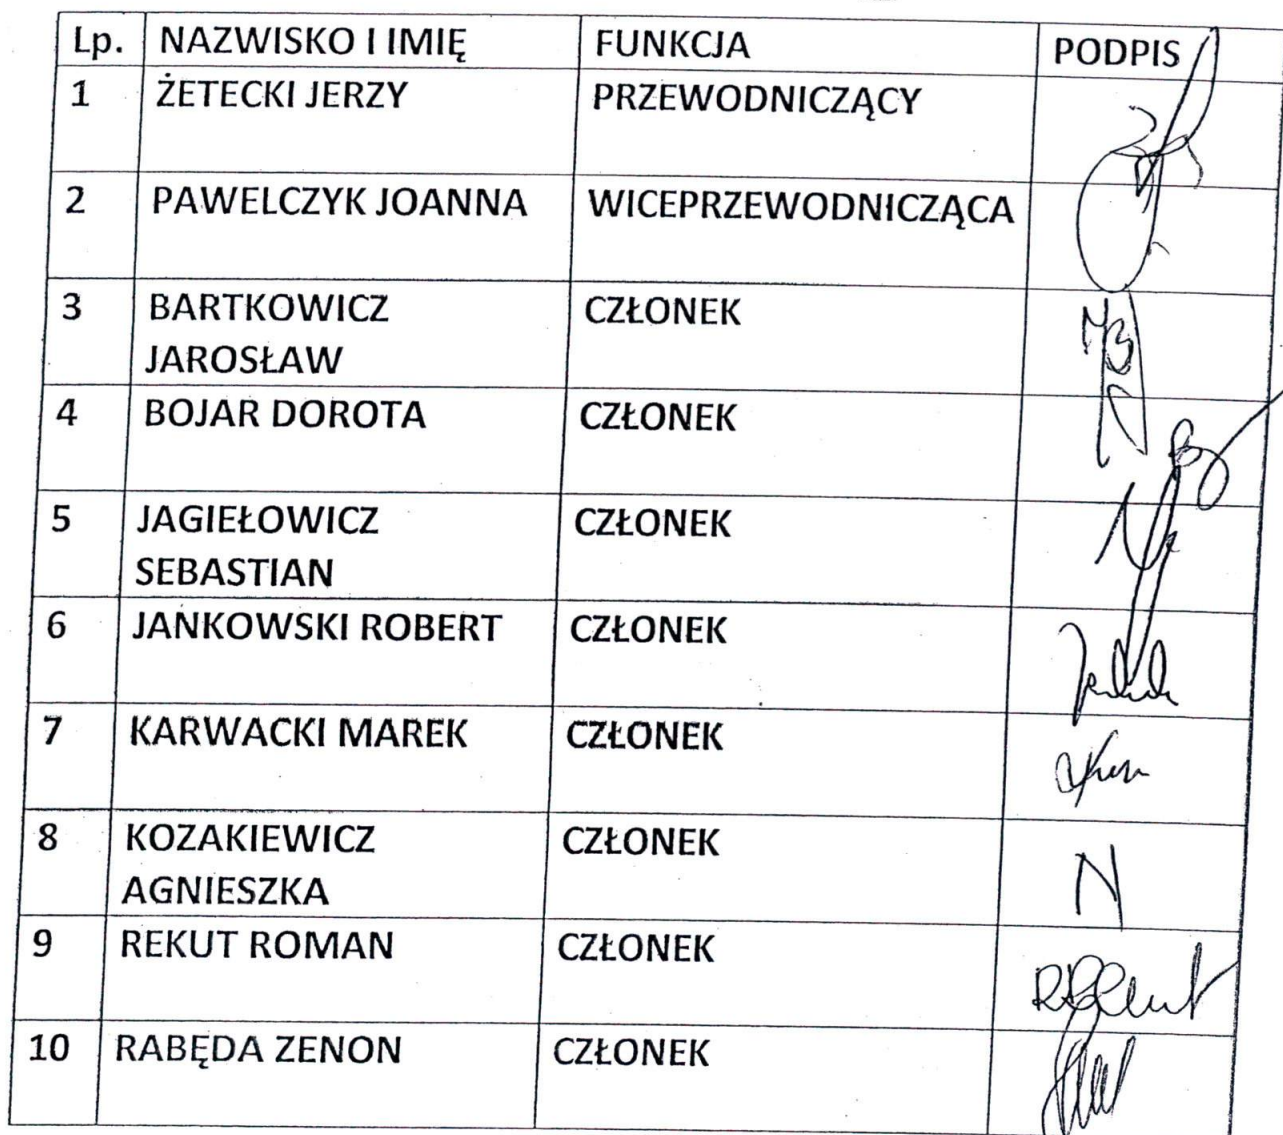 Lp. NAZWISKO I IMIĘ FUNKCJA PODPIS
1 ŻETECKI JERZY PRZEWODNICZĄCY
2 PAWELCZYK JOANNA WICEPRZEWODNICZĄCA
3 BARTKOWICZ CZŁONEK
JAROSŁAW
4 BOJAR DOROTA CZŁONEK
5 JAGIEŁOWICZ CZŁONEK
SEBASTIAN
6 JANKOWSKI ROBERT CZŁONEK
7 KARWACKI MAREK CZŁONEK
8 KOZAKIEWICZ CZŁONEK N
AGNIESZKA
9 REKUT ROMAN CZŁONEK
10 RABĘDA ZENON CZŁONEK